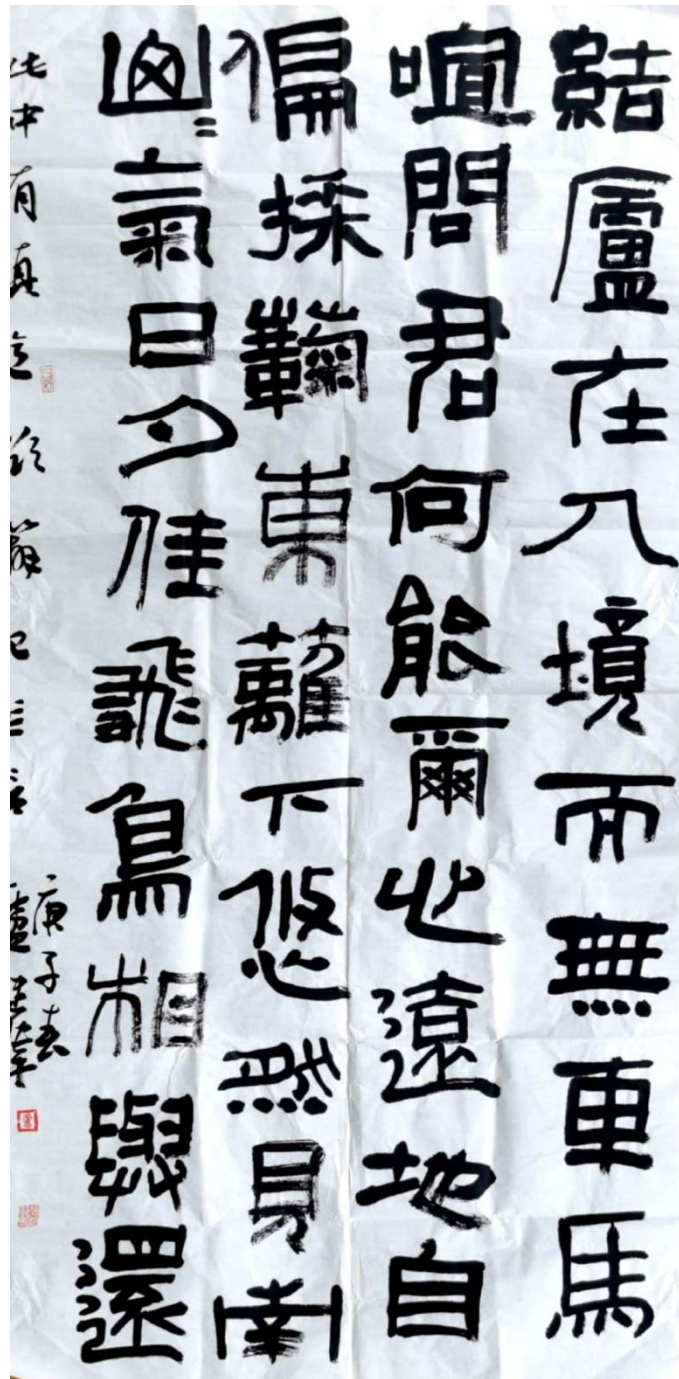 結廬在人境而無車馬
喧問君何能爾心遠地自
偏採蘜東蘺下悠然見南
山〻氣日夕佳飛鳥相與還
此中有真意欲辯已忘言
庚子春